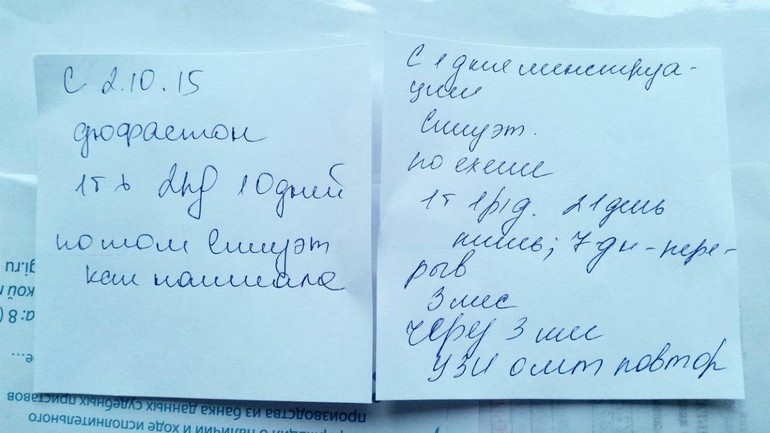 С 2.10.15
дюфастон
1т х 2рд 10дней
потом Силуэт
как написала
С 1 дня менструа-
ции
Силуэт.
по схеме
1т 1р/д. 21день
пишь; 7 дн-пере-
рыв
3 мес
через 3 мес
УЗИ омт повтор
gi.ru
кой
а: 8 (
е...
производства из банка данных судебных приставов
о наличии и ходе исполнительного